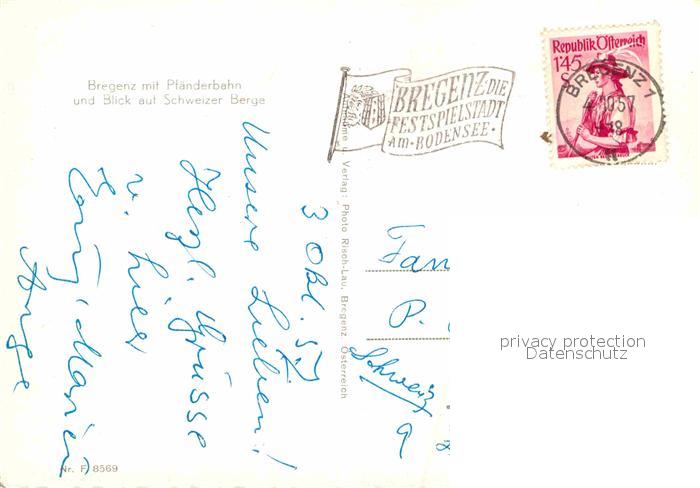 Bregenz mit Pfänderbahn
und Blick auf Schweizer Berge
BREGENZ·DIE
FESTSPIELSTADT
AM·BODENSEE·
Republik Österreich
1'45
S
BREGENZ 1
10.57
18
Verlag: Photo Risch-Lau, Bregenz, Österreich
3 Okt. 57
Unsere Lieben!
Herzl. Grüsse
v. hier
Fam
P.
Schweiz
privacy protection
Datenschutz
Nr. F. 8569